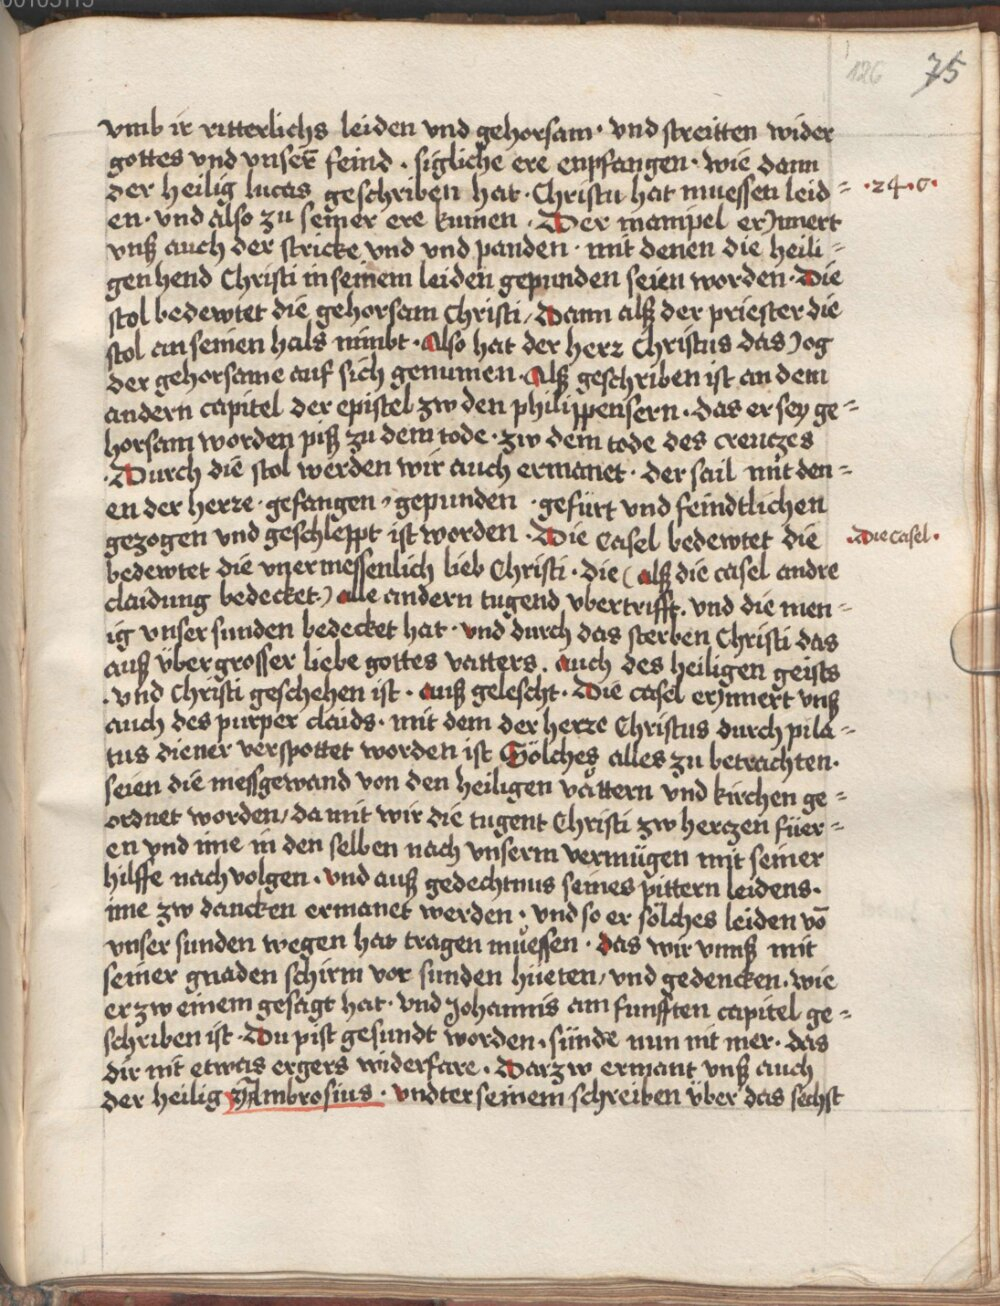 00105115
126 75
vmb ir ritterlichs leiden vnd gehorsam · vnd streitten wider
gottes vnd vnser̄ feind . sigliche ere enpfangen · wie dann
der heilig lucas geschriben hat · Christū hat muessen leid= ·24·c·
en · vnd also zu seiner ere kumen · Der manipel erynnert
vnß auch der stricke vnd vnd panden · mit denen die heili=
gen hend Christi in seinem leiden gepunden seien worden · Die
stol bedewtet die gehorsam Christi / Dann alß der priester die
stol an seinen hals nimbt · Also hat der herr Christus das yog
der gehorsame auf sich genumen · Alß geschriben ist an dem
andern capitel der epistel zw den philippensern · das er sey ge=
horsam worden piß zu dem tode · zw dem tode des creuczes
· Durch die stol werden wir auch ermanet · der sail mit den=
en der herre · gefangen , gepunden · gefürt vnd feindtlichen
gezogen vnd geschleppt ist worden · Die Casel bedewtet die ·Die casel·
bedewtet die vnermessenlich lieb Christi · die ( alß die casel andre
claidung bedecket ) alle andern tugend vbertrifft . vnd die men=
ig vnser sunden bedecket hat · vnd durch das sterben Christi das
auß übergrosser liebe gottes vatters . auch des heiligen geists
· vnd Christi geschehen ist · auß gelescht · Die casel erynnert vnß
auch des purper claids · mit dem der herre Christus durch pila=
tus diener verspottet worden ist Sölches alles zu betrachten ·
seien die messgewand von den heiligen våttern vnd kirchen ge=
ordnet worden / da mit wir die tugent Christi zw herczen füer=
en vnd ime in den selben nach vnserm vermügen mit seiner
hilffe nachvolgen · vnd auß gedechtnus seines pittern leidens ·
ime zw dancken ermanet werden · vnd so er sölches leiden vō
vnser sunden wegen hat tragen müessen · das wir vnnß mit
seiner gnaden schirm vor sunden hüeten / vnd gedencken · wie
er zw einem gesagt hat · vnd Johannis am funfften capitel ge=
schriben ist · Du pist gesundt worden · sünde nun nit mer · das
dir nit etwas ergers widerfare · Darzw ermant vnß auch
der heilig Ambrosius · vndter seinem schreiben über das sechst